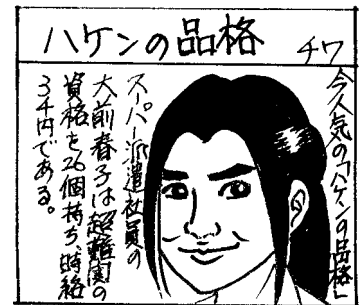 ハケンの品格
チワ
今人気の「ハケンの品格」
スーパー派遣社員の
大前春子は超難関の
資格を26個持ち、時給
3千円である。